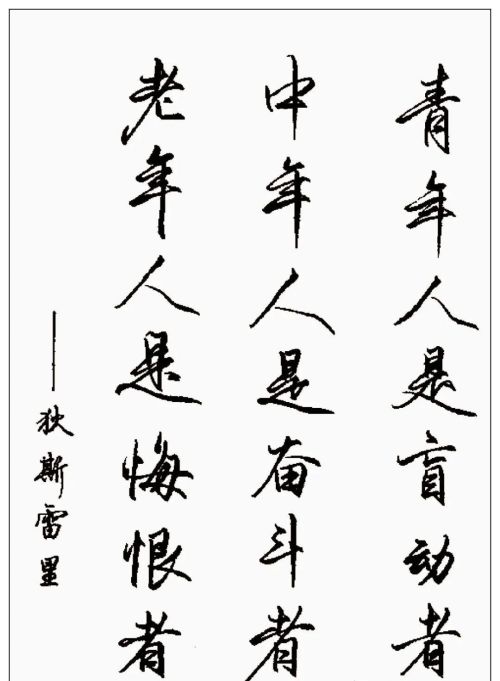 青年人是盲动者
中年人是奋斗者
老年人是悔恨者
——狄斯雷里